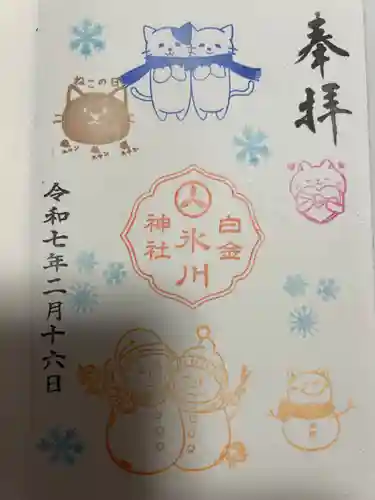 奉拝
ねこの日
白金
氷川
神社
令和七年二月十六日